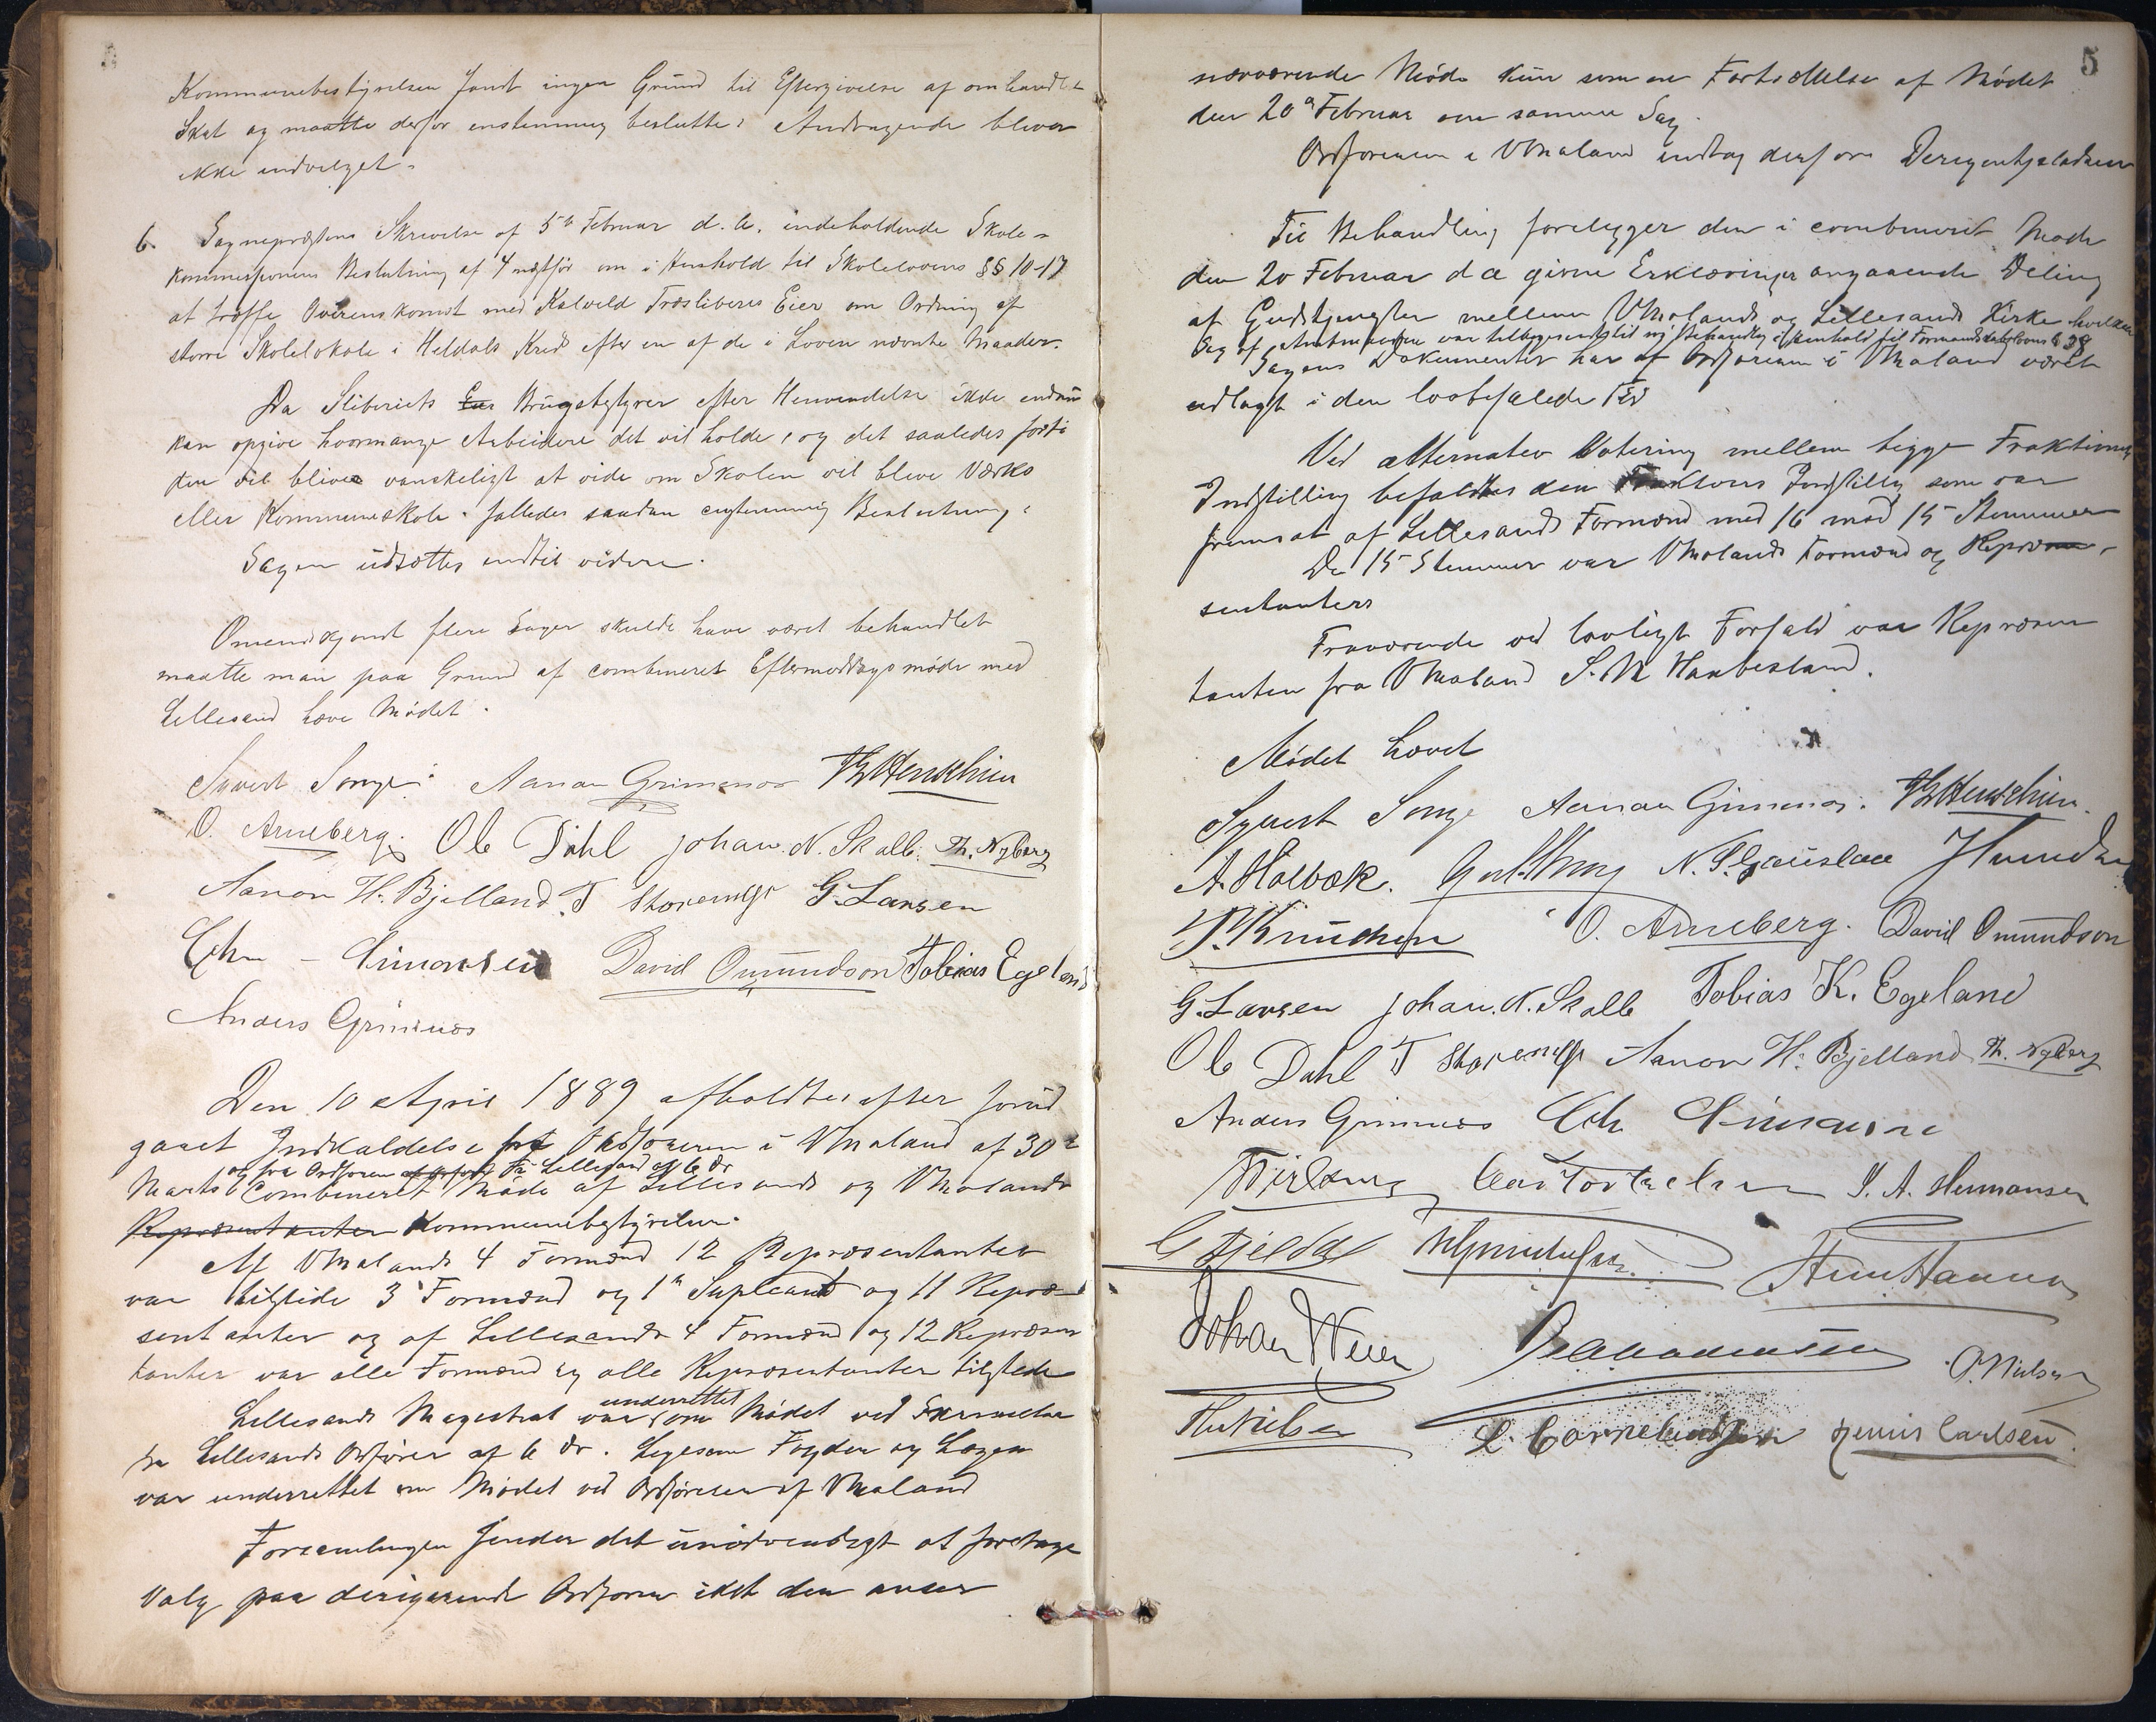 Kommunebestyrelsen fandt ingen Grund til Eftergivelse af omhandlet
Skat og maatte derfor enstemmig beslutte: Andragende bliver
ikke indvilget.
6. Sognepræstens Skrivelse af 5te Februar d. A. indeholdende Skole-
kommissionens Beslutning af 4 næstfør om i Henhold til Skolelovens §§ 10-17
at træffe Overenskomst med Kalveld Træsliberis Eier om Ordning af
større Skolelokale i Heldals Kreds efter en af de i Loven nævnte Maader.
Da Sliberiets Eier Brugsbestyrer efter Henvendelse ikke endnu
kan opgive hvormange Arbeidere det vil holde, og det saaledes forti
den vil blive vanskeligt at vide om Skolen vil blive Værks
eller Kommuneskole. falledes saadan enstemmig Beslutning:
Sagen udsættes indtil videre.
Omendskjøndt flere Sager skulde have været behandlet
maatte man paa Grund af combineret Eftermiddagsmøde med
Lillesand hæve Mødet.
Syvert Songe. Aanon Grimenæs Henschien
O. Arneberg. Ole Dahl Johan. N. Skalle. Th. Nyberg
Aanon H. Bjelland. T G. Larsen
Simonsen David Omundson Tobias Egeland
Anders Grimnæs
Den 10 April 1889 afholdtes efter forud
gaaet Indkaldelse fra Ordføreren i VMoland af 30te
og fra Ordføreren Fra Lillesand af 6 ds
Marts Combineret Møde af Lillesands og VMolands
Repræsentanter Kommunebestyrelser.
Af VMolands 4 Formænd 12 Repræsentanter
var tilstede 3 Formænd og 1te Supleant og 11 Repræ-
sentanter og af Lillesands 4 Formænd og 12 Repræsen
tanter var alle Formænd og alle Repræsentanter tilstede
underrettet
Lillesands Magistrat var om Mødet ved Skrivelse
fra Lillesands Ordfører af 6 ds. Ligesom Fogden og Lægen
var underrettet om Mødet ved Ordføreren af VMoland
Forsamlingen finder det unødvendigt at foretage
Valg paa dirigerende Ordfører idet den anser
5
nærværende Møde kun som en Fortsættelse af Mødet
den 20de Februar om samme Sag.
Ordføreren i VMoland indtog derfor Dirigentpladsen
Til Behandling foreligger den i combineret Møde
den 20 Februar d a givne Erklæringer angaaende Deling
af Gudstjenesten mellem VMolands og Lillesands Kirke hvilken
Sag af Amtmanden var tilbagesendt til ny Behandling i Henhold til Formandskabslovens § 38
Sagens Dokumenter har af Ordføreren i VMoland været
udlagt i den lovbefalede Tid
Ved alternativ Votering mellem begge Fraktioners
Indstilling befaldtes den Fraktions Indstilling som var
fremsat af Lillesands Formænd med 16 mod 15 Stemmer
De 15 Stemmer var VMolands Formænd og Repræ-
sentanters
Fraværende ved lovligt Forfald var Repræsen
tanten fra VMoland S. M Haabesland.
Mødet hævet
Syvert Songe Aanon Grimenæs. Henschien.
A. Holbæk. N. P. Gauslaa
P. Knudsen O. Arneberg. David Omundson
G. Larsen Johan. N. Skalle Tobias K. Egeland
Ole Dahl T Aanon H. Bjelland Th. Nyberg
Anders Grimnæs Simonsen
S. A. Hermansen
G Fjeldal Hansen
Johan Weier P. Nielsen
Nielsen C. Corneliussen Jennis Carlsen.